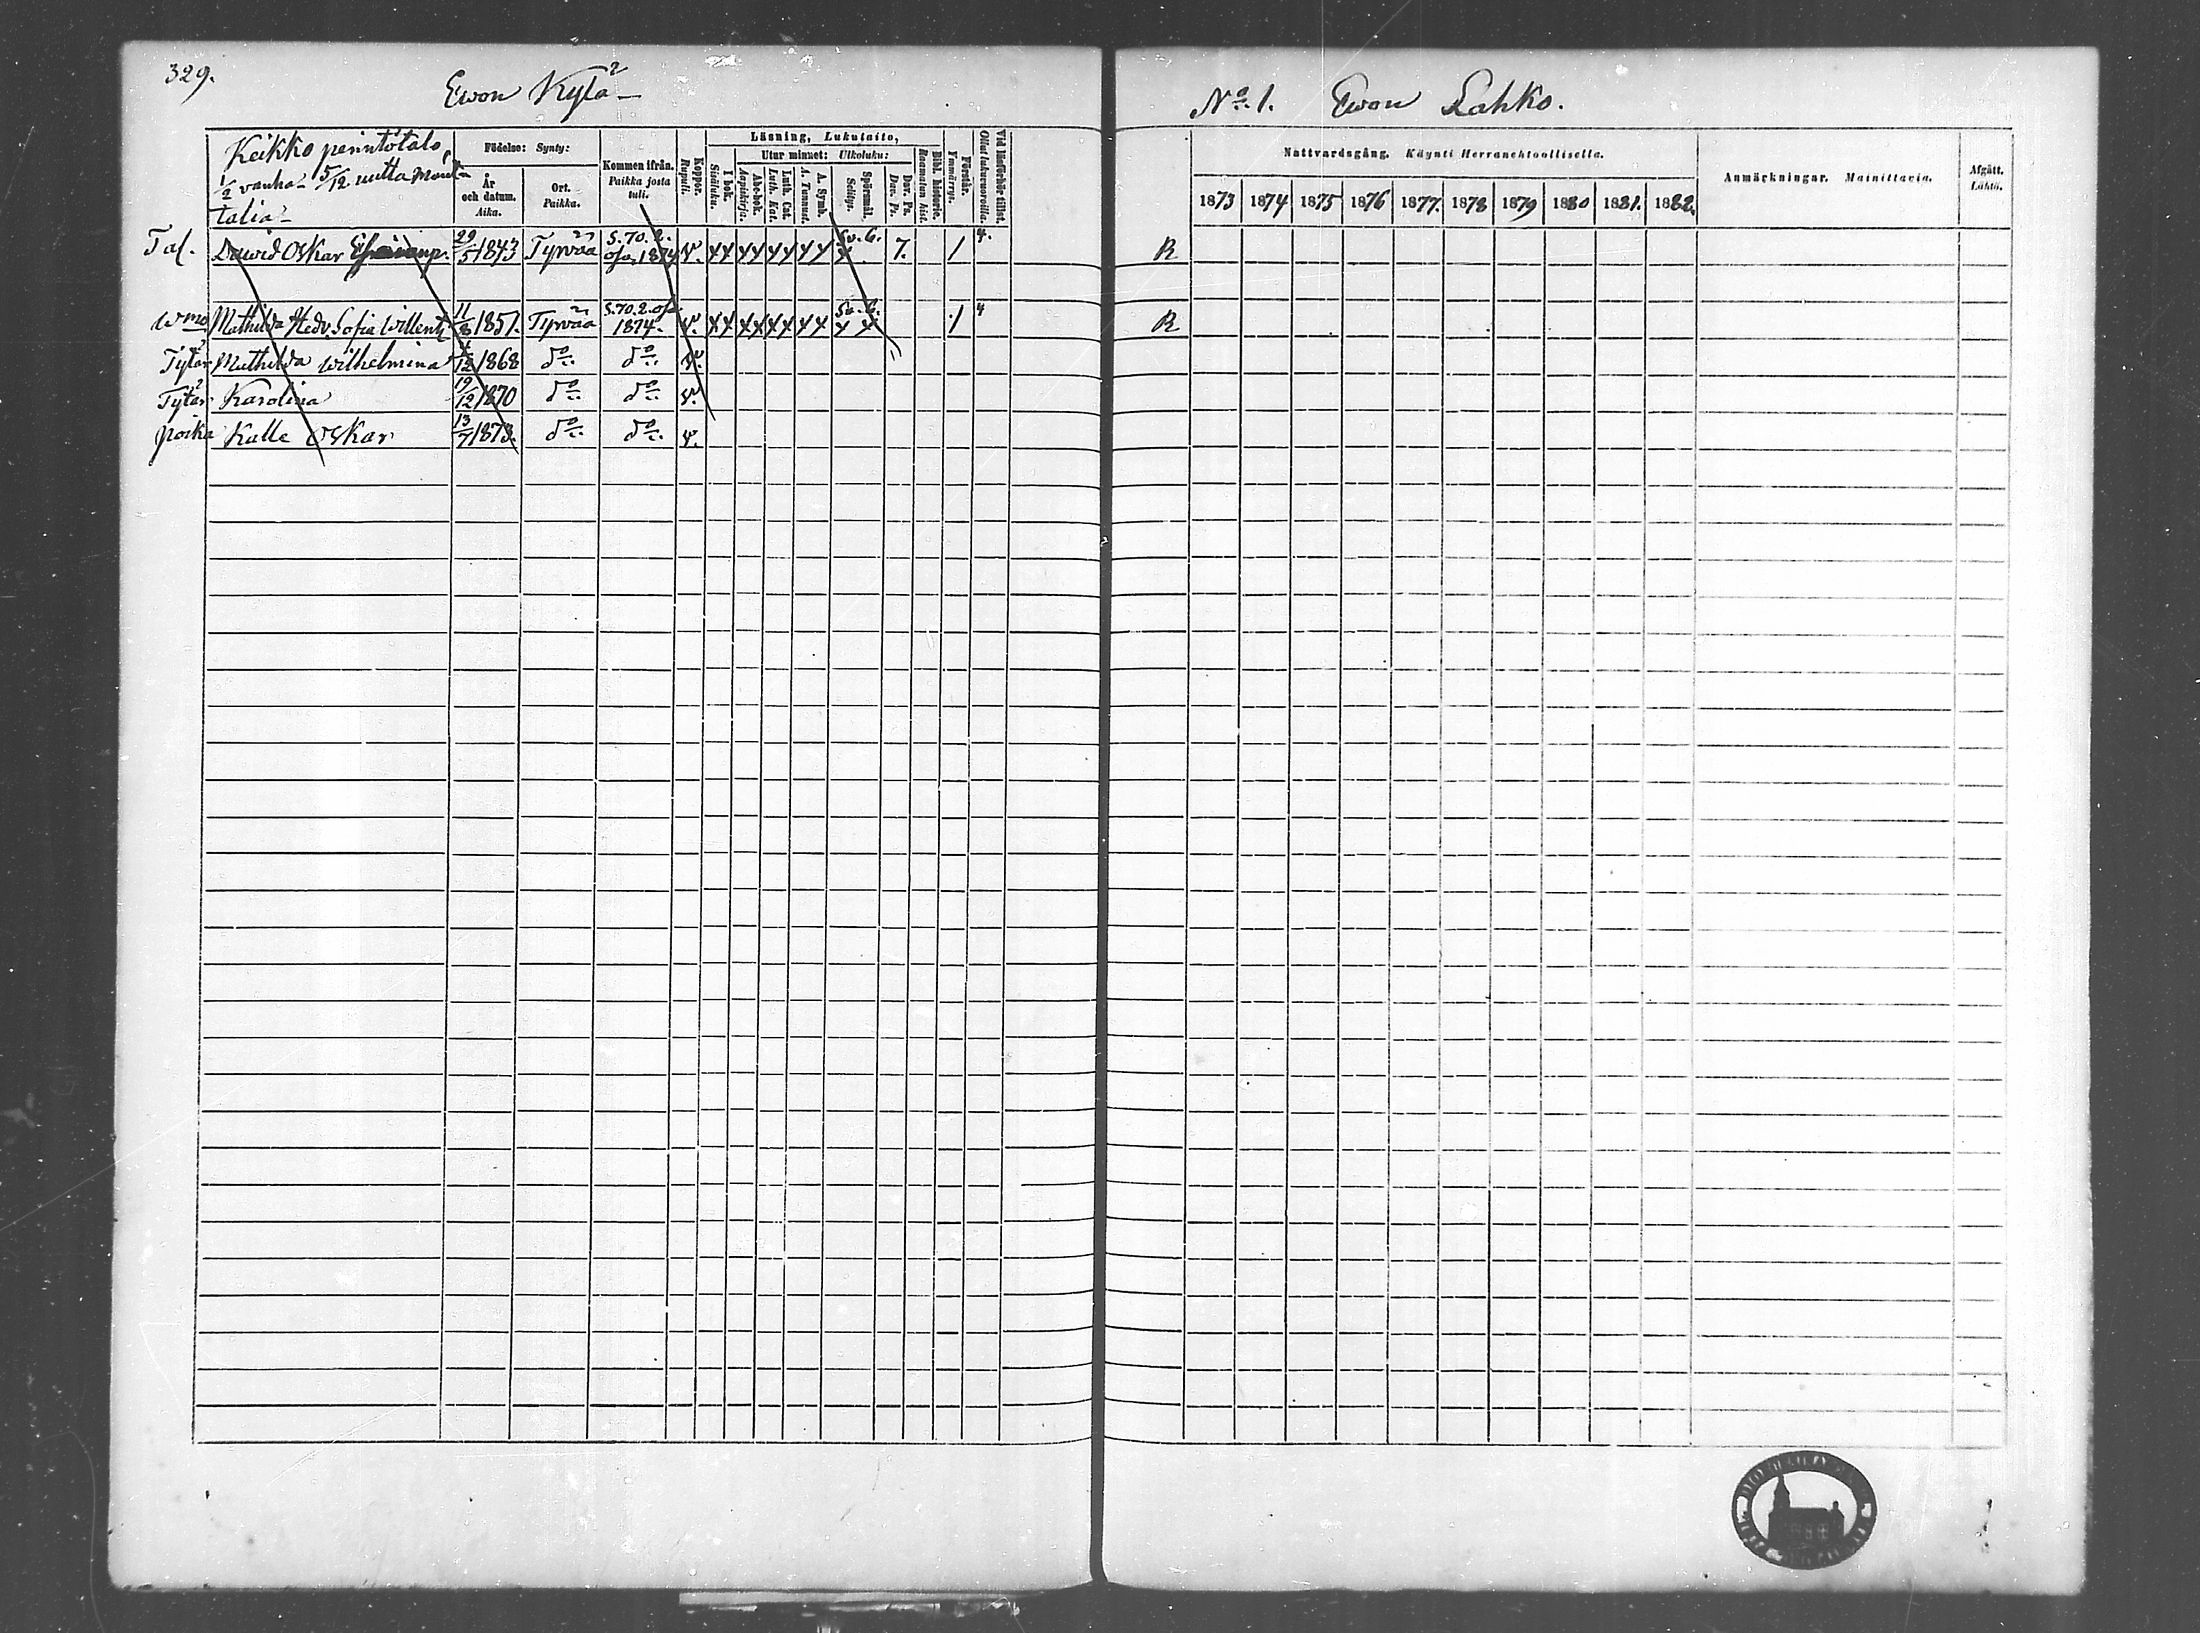 329.
Ewon Kylä
No 1. Ewon Lahko.
Keikko perintötalo,
1/2 vanha 5/12 uutta mant-
talia
Födelse: Synty:
År och datum. Aika.
Ort. Paikka.
Kommen ifrån. Paikka josta tuli.
Koppor. Rupuli.
Läsning, Lukutaito,
I bok. Sisäluku.
Utur minnet: Ulkoluku:
Abc-bok. Aapiskirja.
Luth. Cat. Luth. Kat.
A. Symb. A. Tunnust.
Spörsmål. Selitys.
Dav. Ps. Dav. Ps.
Bibl. historie. Raamatun hist.
Förstår. Ymmärrys.
Vid läsförhör tillst. Ollut lukuvuoroilla.
Nattvardsgång. Käynti Herranehtoollisella.
1873 1874 1875 1876 1877. 1878 1879 1880 1881. 1882.
Anmärkningar. Mainittavia.
Afgått. Lähtö.
Tal. Dawid Oskar 29/5 1843 Tyrvää S. 70. 2. osa, 1874 v. Sv. C. 7. 1 4. R
Wmo Mathilda Hedv. Sofia Willent. 11/8 1851. Tyrvää S. 70. 2. osa 1874. v. Sv. C. 1 4 R
Tytär Mathilda Wilhelmina /12 1868 do do v.
Tytär Karolina 19/12 1870 do do v.
poika Kalle Oskar 13/7 1873. do do v.